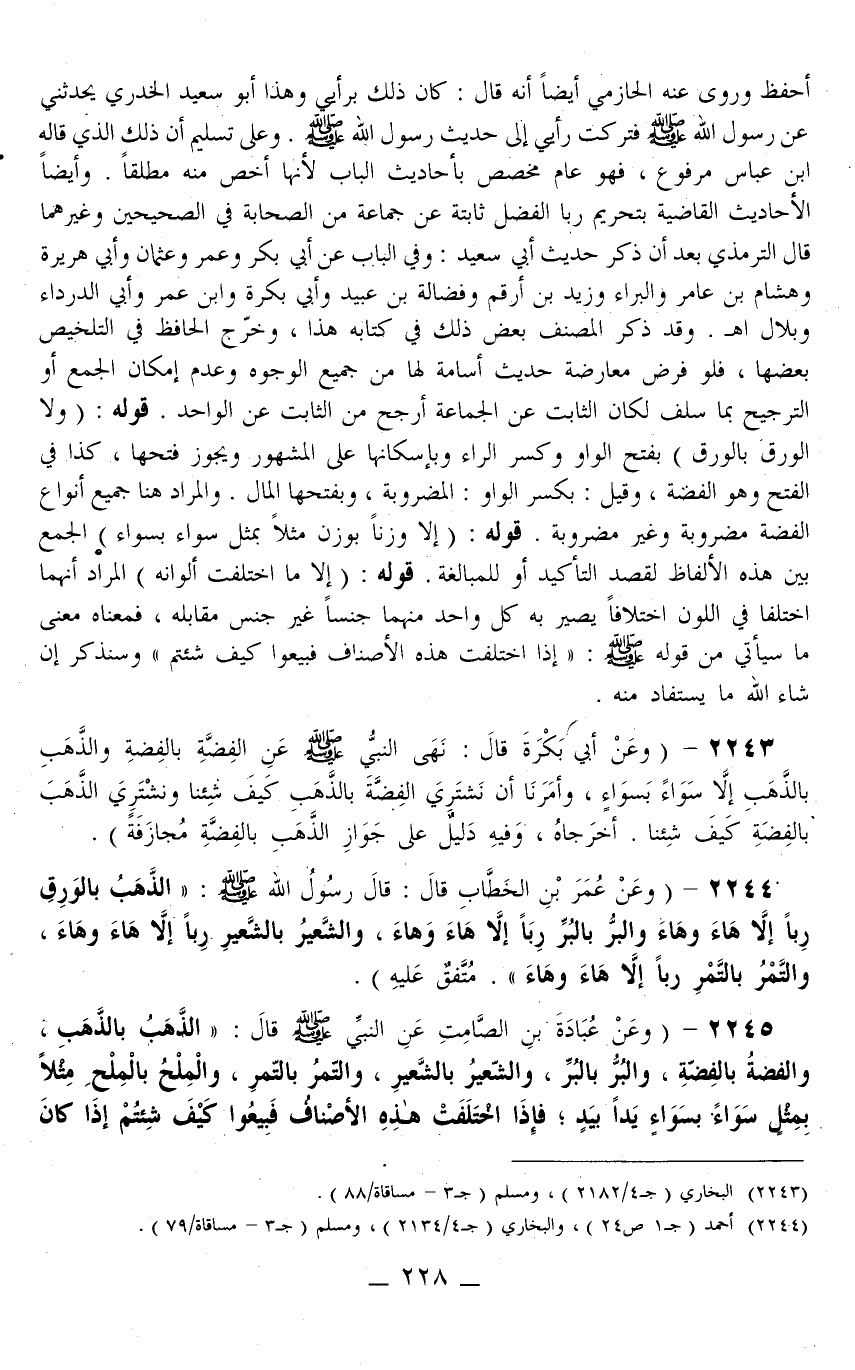 أحفظ وروى عنه الحازمي أيضاً أنه قال : كان ذلك برأيي وهذا أبو سعيد الخدري يحدثني
عن رسول الله ﷺ فتركت رأيي إلى حديث رسول الله ﷺ . وعلى تسليم أن ذلك الذي قاله
ابن عباس مرفوع ، فهو عام مخصص بأحاديث الباب لأنها أخص منه مطلقاً . وأيضاً
الأحاديث القاضية بتحريم ربا الفضل ثابتة عن جماعة من الصحابة في الصحيحين وغيرهما
قال الترمذي بعد أن ذكر حديث أبي سعيد : وفي الباب عن أبي بكر وعمر وعثمان وأبي هريرة
وهشام بن عامر والبراء وزيد بن أرقم وفضالة بن عبيد وأبي بكرة وابن عمر وأبي الدرداء
وبلال اهـ . وقد ذكر المصنف بعض ذلك في كتابه هذا ، وخرّج الحافظ في التلخيص
بعضها ، فلو فرض معارضة حديث أسامة لها من جميع الوجوه وعدم إمكان الجمع أو
الترجيح بما سلف لكان الثابت عن الجماعة أرجح من الثابت عن الواحد . قوله : ( ولا
الورق بالورق ) بفتح الواو وكسر الراء وبإسكانها على المشهور ويجوز فتحها ، كذا في
الفتح وهو الفضة ، وقيل : بكسر الواو : المضروبة ، وبفتحها المال . والمراد هنا جميع أنواع
الفضة مضروبة وغير مضروبة . قوله : ( إلا وزناً بوزن مثلاً بمثل سواء بسواء ) الجمع
بين هذه الألفاظ لقصد التأكيد أو للمبالغة . قوله : ( إلا ما اختلفت ألوانه ) المراد أنهما
اختلفا في اللون اختلافاً يصير به كل واحد منهما جنساً غير جنس مقابله ، فمعناه معنى
ما سيأتي من قوله ﷺ : « إذا اختلفت هذه الأصناف فبيعوا كيف شئتم » وسنذكر إن
شاء الله ما يستفاد منه .
٢٢٤٣ – ( وعَنْ أبي بَكْرَةَ قالَ : نَهَى النبيُّ ﷺ عَنِ الفِضَّةِ بالفِضةِ والذَّهَبِ
بالذَّهَبِ إلَّا سَوَاءً بَسوَاءٍ ، وأمَرَنَا أن نَشتَرِيَ الفِضَّةَ بالذَّهَبِ كَيفَ شِئنا ونشْتَرِيَ الذَّهَبَ
بالفِضَةِ كَيفَ شِئنا . أخرَجاهُ ، وَفيهِ دَليلٌ على جَوَازِ الذَّهَبِ بالفِضَّةِ مُجازَفَةً ) .
٢٢٤٤ – ( وعَنْ عُمَرَ بْنِ الخَطَّابِ قالَ : قالَ رسولُ الله ﷺ : « الذَّهَبُ بالوَرِقِ
رِباً إلَّا هَاءَ وهَاءَ والبرُّ بالبُرِّ رِبَاً إلَّا هَاءَ وَهاءَ ، والشَّعيرُ بالشَّعيرِ رِباً إلَّا هَاءَ وهَاءَ ،
والتَّمْرُ بالتَّمْرِ رباً إلَّا هَاءَ وهَاءَ » . مُتَّفقٌ عَليهِ ) .
٢٢٤٥ – ( وعَنْ عُبَادَةَ بنِ الصَّامِتِ عَنِ النبيِّ ﷺ قالَ : « الذَّهَبُ بالذَّهَبِ ،
والفضةُ بالفِضّةِ ، والبُرُّ بالبُرِّ ، والشّعيرُ بالشَّعيرِ ، والتّمرُ بالتّمرِ ، والْمِلْحُ بالْمِلْحِ مِثْلاً
بِمِثْلٍ سَوَاءً بسَوَاءٍ يَداً بيَدٍ ؛ فإذَا اخْتَلَفَتْ هـٰذِهِ الأصْنافُ فَبِيعُوا كَيْفَ شِئتُمْ إذَا كانَ
(٢٢٤٣) البخاري ( جـ٤/٢١٨٢ ) ، ومسلم ( جـ٣ – مساقاة/٨٨ ) .
(٢٢٤٤) أحمد ( جـ١ ص٢٤ ) ، والبخاري ( جـ٤/٢١٣٤ ) ، ومسلم ( جـ٣ – مساقاة/٧٩ ) .
– ٢٢٨ –